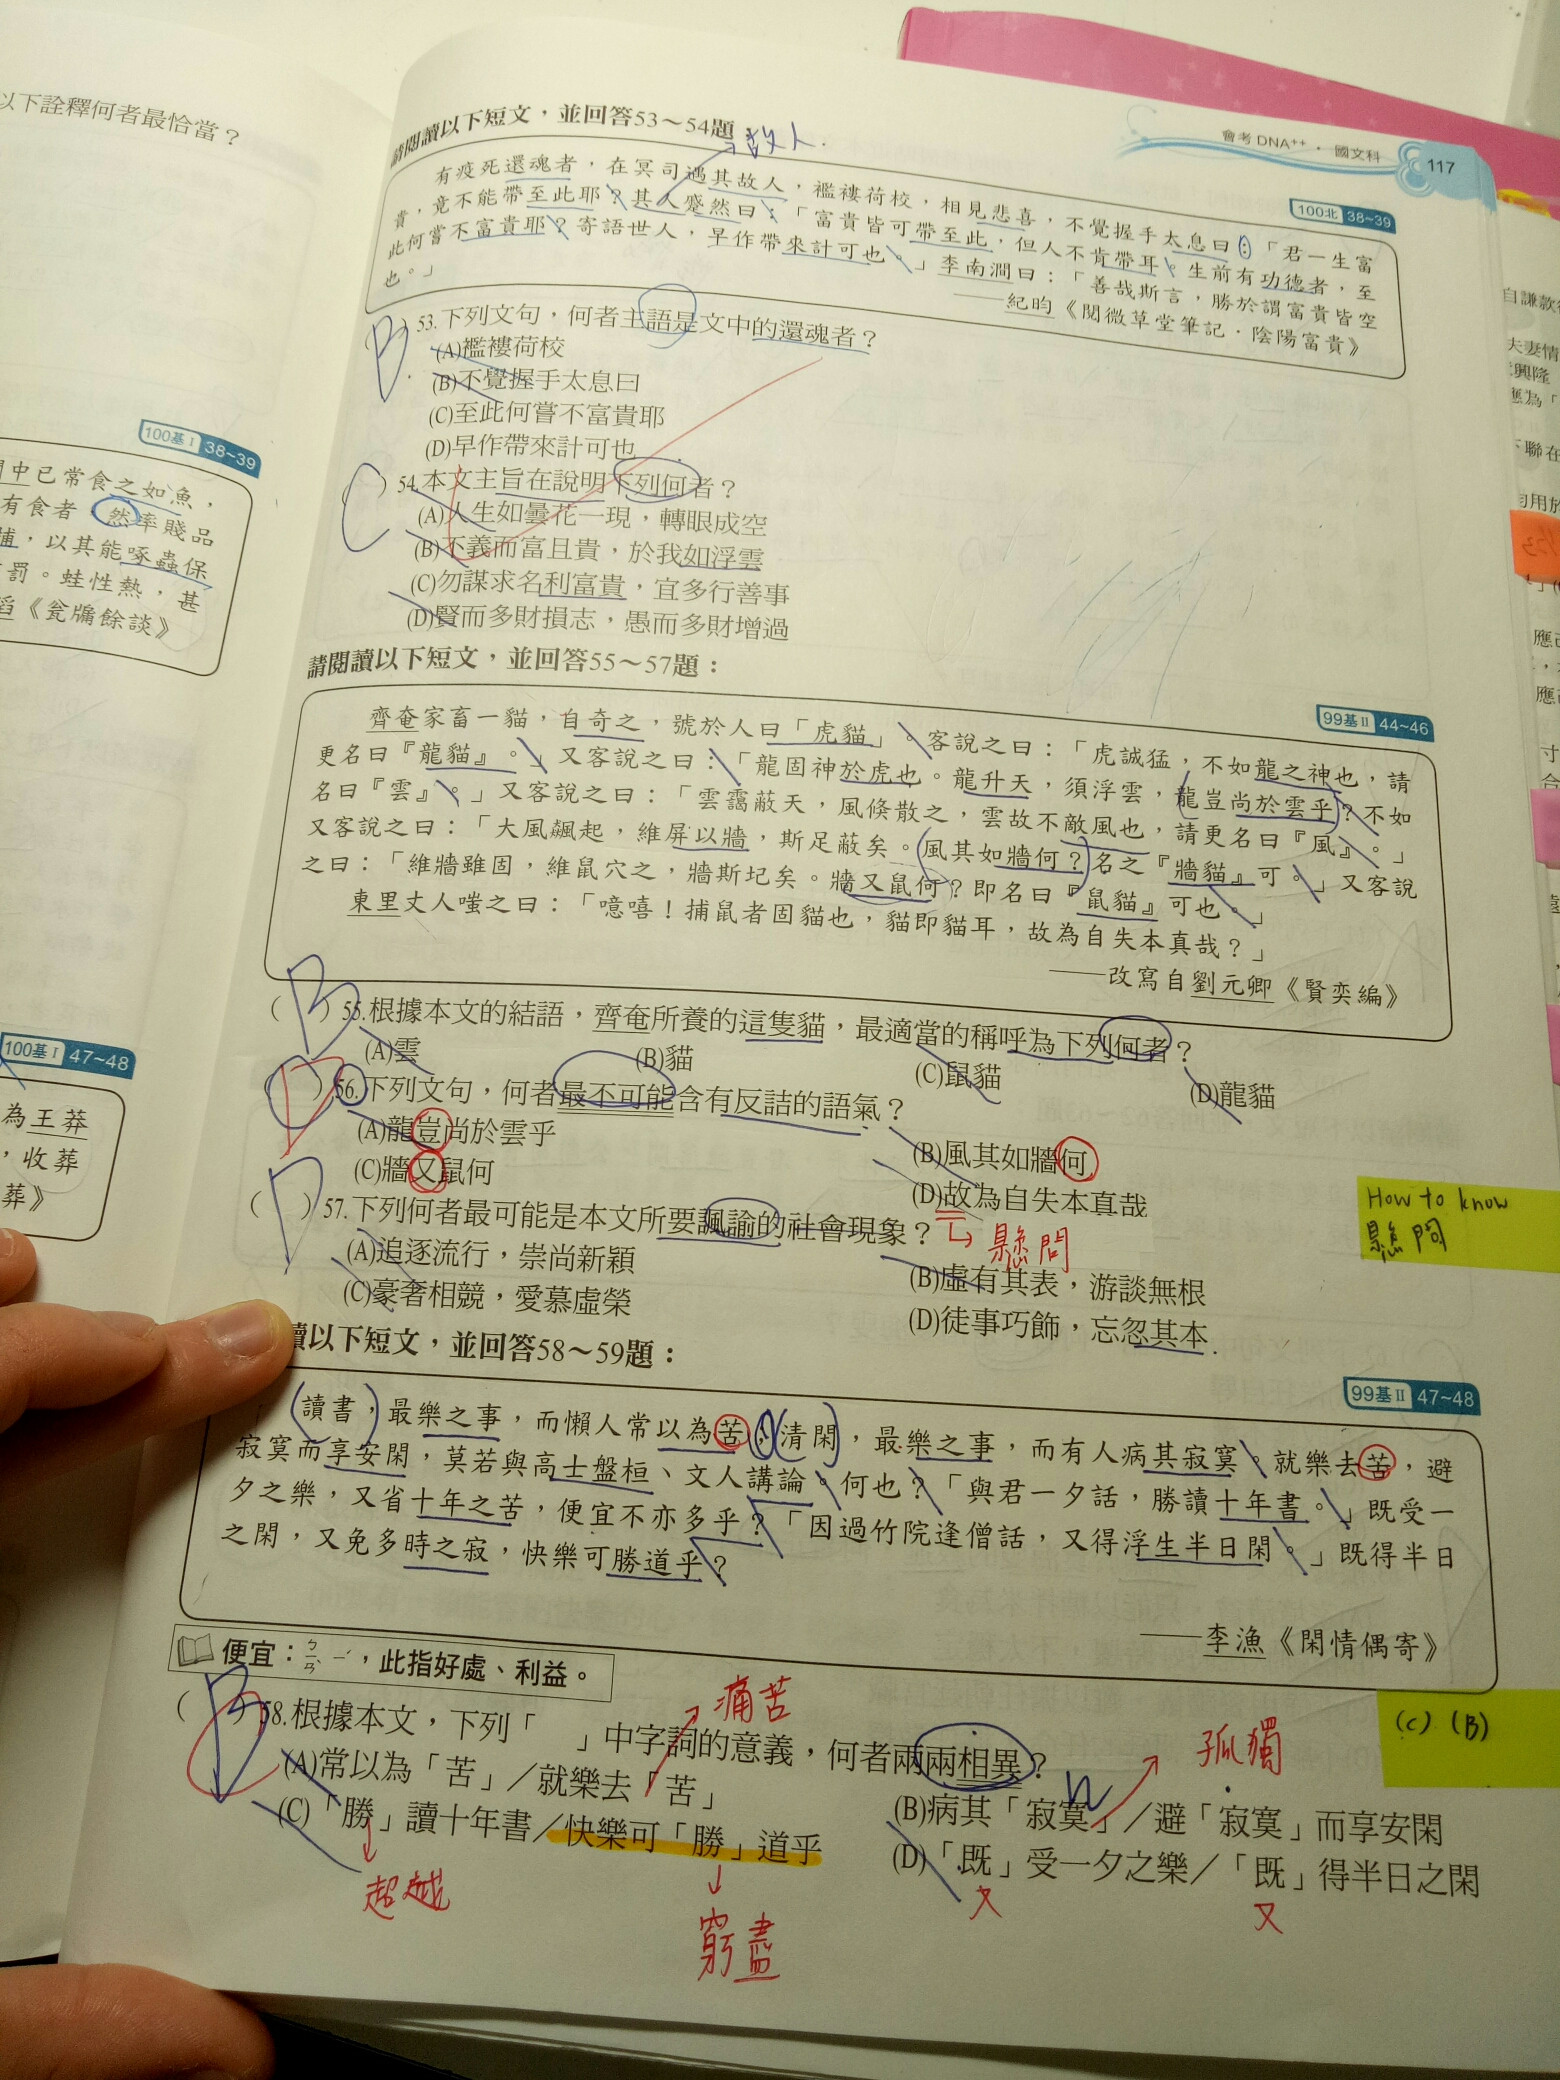 以下詮釋何者最恰當？
100基Ⅰ 38~39
中已常食之如魚，
有食者，然率賤品
，以其能啄蟲保
罰。蛙性熱，甚
《瓮牖餘談》
100基Ⅰ 47~48
為王莽
，收葬
葬》
會考 DNA++ · 國文科 117
請閱讀以下短文，並回答53～54題：
故人.
100北 38~39
有疫死還魂者，在冥司遇其故人，襤褸荷校，相見悲喜，不覺握手太息曰：「君一生富
貴，竟不能帶至此耶？其人蹙然曰：「富貴皆可帶至此，但人不肯帶耳。生前有功德者，至
此何嘗不富貴耶？寄語世人，早作帶來計可也。」李南澗曰：「善哉斯言，勝於謂富貴皆空
也。」
——紀昀《閱微草堂筆記．陰陽富貴》
B
53.下列文句，何者主語是文中的還魂者？
(A)襤褸荷校
(B)不覺握手太息曰
(C)至此何嘗不富貴耶
(D)早作帶來計可也
C
54.本文主旨在說明下列何者？
(A)人生如曇花一現，轉眼成空
(B)不義而富且貴，於我如浮雲
(C)勿謀求名利富貴，宜多行善事
(D)賢而多財損志，愚而多財增過
請閱讀以下短文，並回答55～57題：
99基Ⅱ 44~46
齊奄家畜一貓，自奇之，號於人曰「虎貓」。客說之曰：「虎誠猛，不如龍之神也，請
更名曰『龍貓』。」又客說之曰：「龍固神於虎也。龍升天，須浮雲，龍豈尚於雲乎？不如
名曰『雲』。」又客說之曰：「雲靄蔽天，風倏散之，雲故不敵風也，請更名曰『風』。」
又客說之曰：「大風飆起，維屏以牆，斯足蔽矣。風其如牆何？名之『牆貓』可。」又客說
之曰：「維牆雖固，維鼠穴之，牆斯圮矣。牆又鼠何？即名曰『鼠貓』可也。」
東里丈人嗤之曰：「噫嘻！捕鼠者固貓也，貓即貓耳，故為自失本真哉？」
——改寫自劉元卿《賢奕編》
B
( )55.根據本文的結語，齊奄所養的這隻貓，最適當的稱呼為下列何者？
(A)雲 (B)貓 (C)鼠貓 (D)龍貓
D
( )56.下列文句，何者最不可能含有反詰的語氣？
(A)龍豈尚於雲乎 (B)風其如牆何
(C)牆又鼠何 (D)故為自失本真哉
懸問
How to know
懸問
D
( )57.下列何者最可能是本文所要諷諭的社會現象？
(A)追逐流行，崇尚新穎 (B)虛有其表，游談無根
(C)豪奢相競，愛慕虛榮 (D)徒事巧飾，忘忽其本
讀以下短文，並回答58～59題：
99基Ⅱ 47~48
讀書，最樂之事，而懶人常以為苦；清閑，最樂之事，而有人病其寂寞。就樂去苦，避
寂寞而享安閑，莫若與高士盤桓、文人講論。何也？「與君一夕話，勝讀十年書。」既受一
夕之樂，又省十年之苦，便宜不亦多乎？「因過竹院逢僧話，又得浮生半日閑。」既得半日
之閑，又免多時之寂，快樂可勝道乎？
——李漁《閑情偶寄》
便宜：ㄅㄧㄢˋ ㄧˊ，此指好處、利益。
B
( )58.根據本文，下列「　」中字詞的意義，何者兩兩相異？
痛苦
孤獨
(C) (B)
(A)常以為「苦」／就樂去「苦」 (B)病其「寂寞」／避「寂寞」而享安閑
(C)「勝」讀十年書／快樂可「勝」道乎 (D)「既」受一夕之樂／「既」得半日之閑
超越
窮盡
又
又